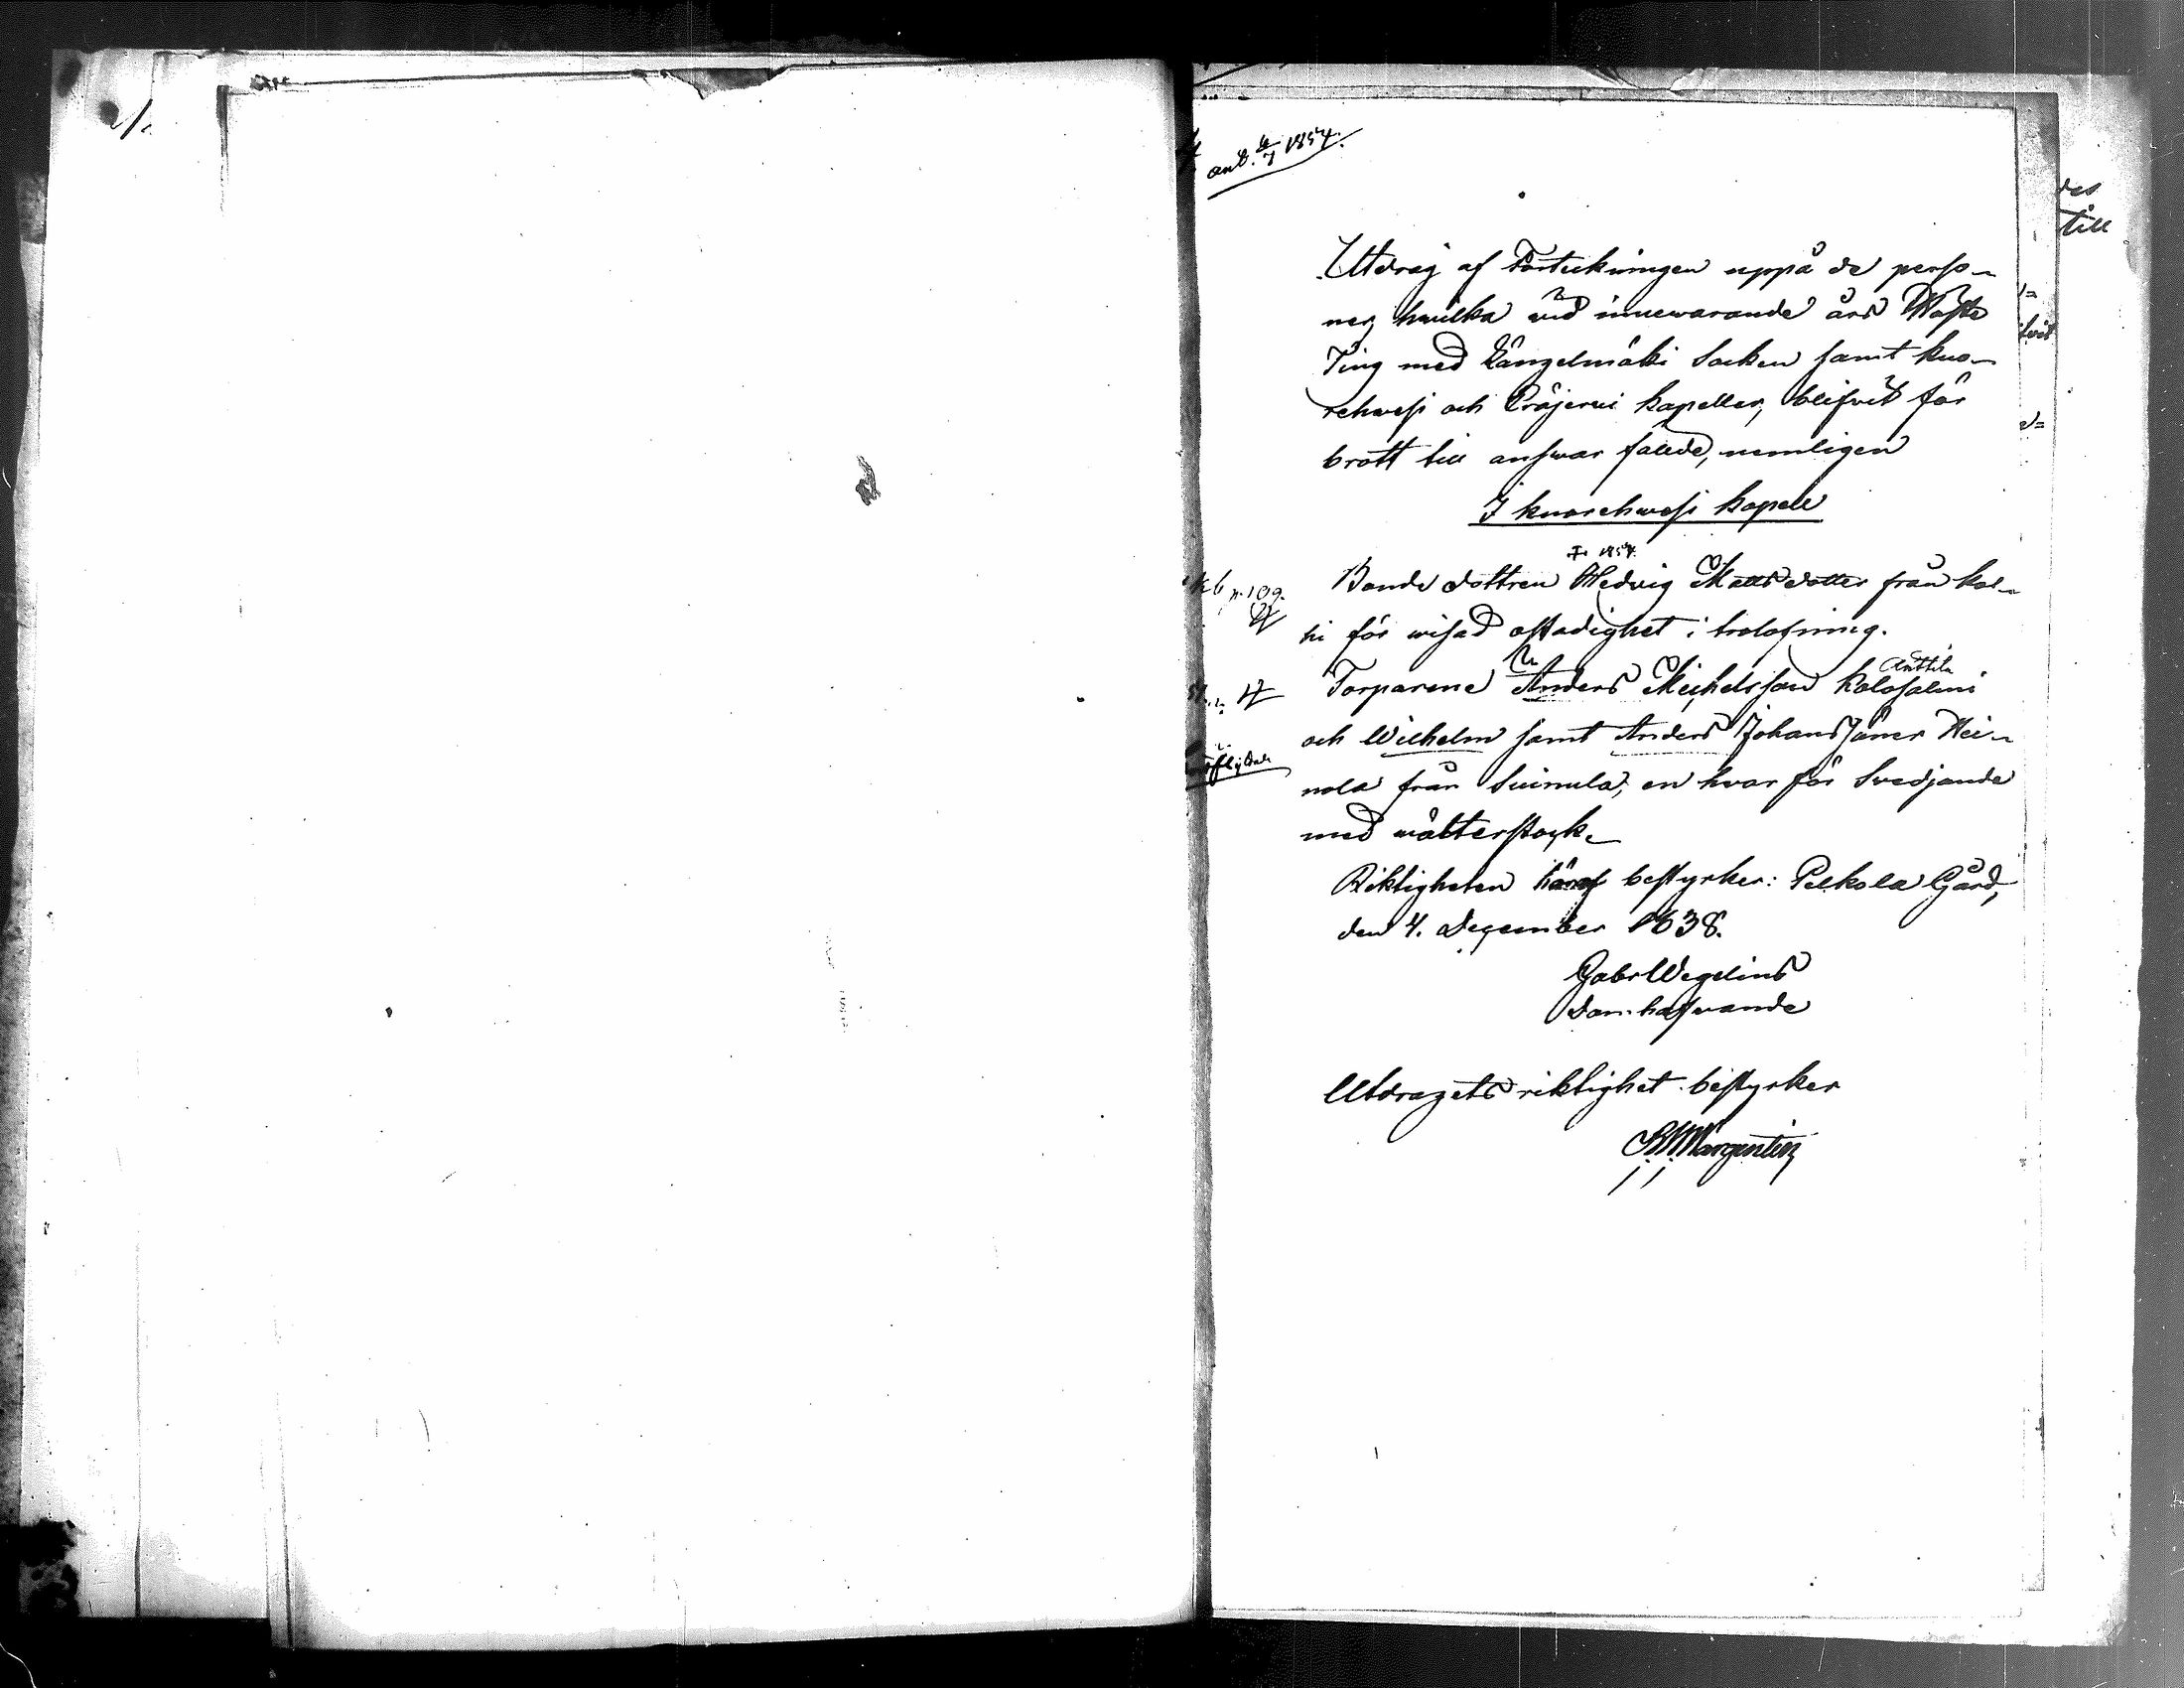 ant. 6/7 1854.
Utdrag af Förtekningen uppå de perso-
ner, hwilka wid innewarande års Höste
Ting med Längelmäki Socken samt Kuo-
rehwesi och Eräjerwi Kapeller, blifwit för
brott till answar fälde, nemligen
I Kuorehwesi Kapell
1854.
Bonde dottren Hedvig Matts dotter från Kol-
ki för wisad ostadighet i trolofning.
Anttila
Torparene Anders Michelsson Kolosalmi
och Wilhelm samt Anders Johans Söner Hei-
nola från Suinula, en hvar för Swedjande
med wälterstock.
Riktigheten häraf bestyrker: Pelkola Gård,
den 4. December 1838.
Gabr Wegelius
Dom-hafwande
Utdragets riktighet bestyrker
p. 109.
till